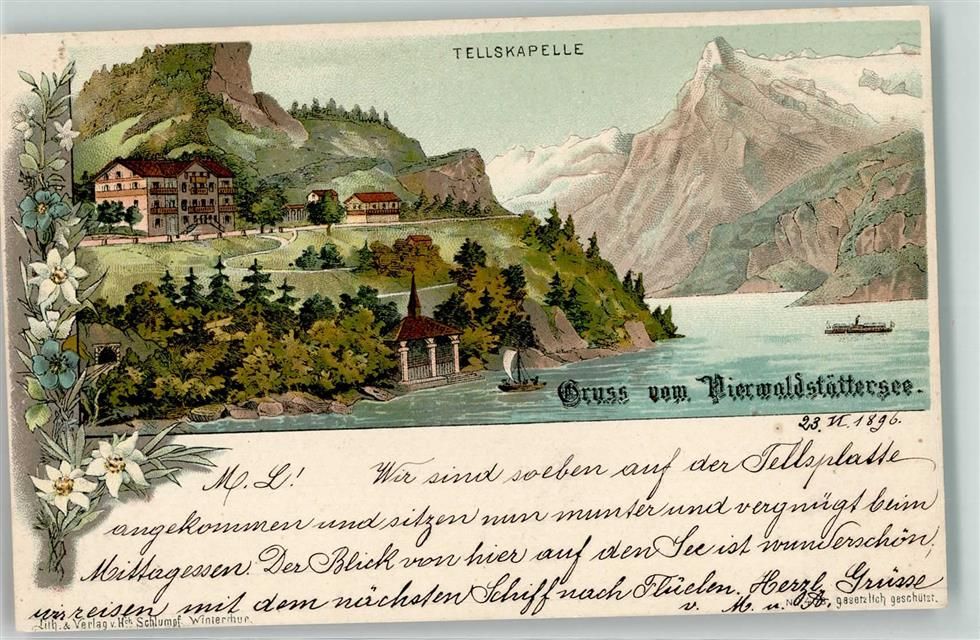 TELLSKAPELLE
Gruss vom Vierwaldstättersee.
23. VI. 1896.
M. L.! Wir sind soeben auf der Tellsplatte
angekommen und sitzen nun munter und vergnügt beim
Mittagessen. Der Blick von hier auf den See ist wunderschön,
wir reisen mit dem nächsten Schiff nach Flüelen. Herzl. Grüsse
v. M. u.
Lith. & Verlag v. Hch. Schlumpf, Winterthur.
gesetzlich geschützt.